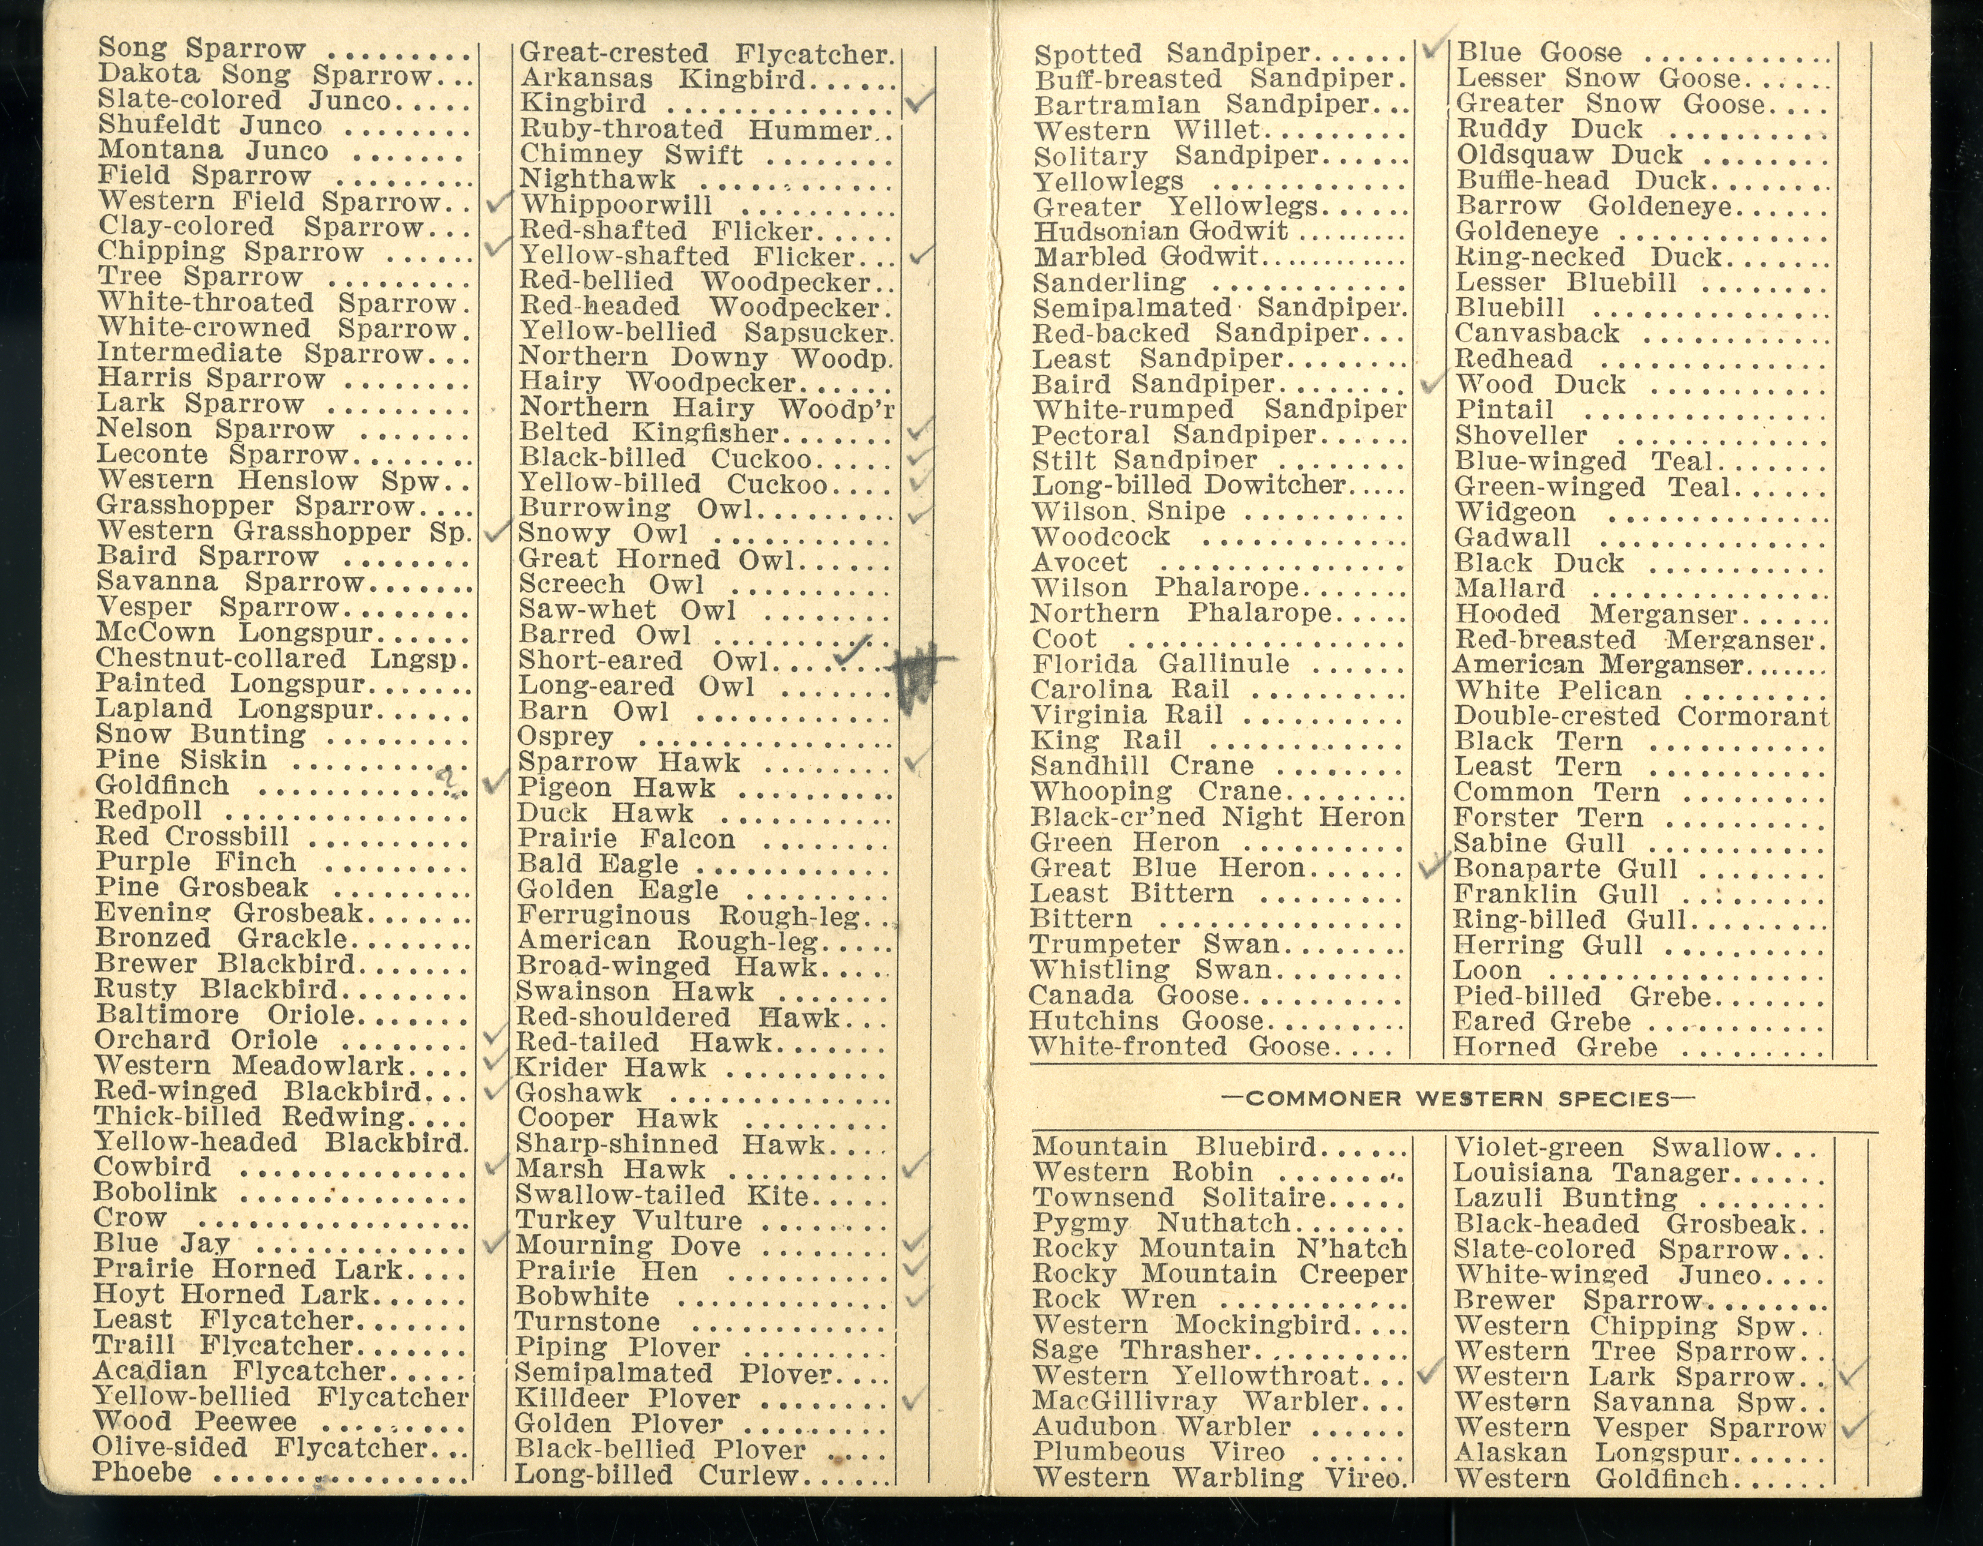 Song Sparrow .........
Dakota Song Sparrow...
Slate-colored Junco.....
Shufeldt Junco ........
Montana Junco .......
Field Sparrow .........
Western Field Sparrow.. ✓
Clay-colored Sparrow...
Chipping Sparrow ...... ✓
Tree Sparrow .........
White-throated Sparrow.
White-crowned Sparrow.
Intermediate Sparrow...
Harris Sparrow ........
Lark Sparrow .........
Nelson Sparrow .......
Leconte Sparrow........
Western Henslow Spw..
Grasshopper Sparrow....
Western Grasshopper Sp. ✓
Baird Sparrow ........
Savanna Sparrow.......
Vesper Sparrow........
McCown Longspur......
Chestnut-collared Lngsp.
Painted Longspur.......
Lapland Longspur......
Snow Bunting .........
Pine Siskin ...........
Goldfinch ............. ? ✓
Redpoll ...............
Red Crossbill ..........
Purple Finch .........
Pine Grosbeak .........
Evening Grosbeak.......
Bronzed Grackle........
Brewer Blackbird.......
Rusty Blackbird........
Baltimore Oriole.......
Orchard Oriole ........ ✓
Western Meadowlark.... ✓
Red-winged Blackbird... ✓
Thick-billed Redwing....
Yellow-headed Blackbird.
Cowbird .............. ✓
Bobolink ..............
Crow .................
Blue Jay ............. ✓
Prairie Horned Lark....
Hoyt Horned Lark......
Least Flycatcher.......
Traill Flycatcher.......
Acadian Flycatcher.....
Yellow-bellied Flycatcher
Wood Peewee .........
Olive-sided Flycatcher...
Phoebe ................
Great-crested Flycatcher.
Arkansas Kingbird......
Kingbird .............. ✓
Ruby-throated Hummer..
Chimney Swift ........
Nighthawk ............
Whippoorwill ..........
Red-shafted Flicker.....
Yellow-shafted Flicker... ✓
Red-bellied Woodpecker..
Red-headed Woodpecker.
Yellow-bellied Sapsucker.
Northern Downy Woodp.
Hairy Woodpecker......
Northern Hairy Woodp'r
Belted Kingfisher....... ✓
Black-billed Cuckoo..... ✓
Yellow-billed Cuckoo.... ✓
Burrowing Owl......... ✓
Snowy Owl ...........
Great Horned Owl......
Screech Owl ..........
Saw-whet Owl ........
Barred Owl ...........
Short-eared Owl........ ✓
Long-eared Owl .......
Barn Owl ............
Osprey ................
Sparrow Hawk ........ ✓
Pigeon Hawk ..........
Duck Hawk ...........
Prairie Falcon ........
Bald Eagle ............
Golden Eagle .........
Ferruginous Rough-leg...
American Rough-leg.....
Broad-winged Hawk....
Swainson Hawk .......
Red-shouldered Hawk...
Red-tailed Hawk.......
Krider Hawk ..........
Goshawk ..............
Cooper Hawk .........
Sharp-shinned Hawk....
Marsh Hawk .......... ✓
Swallow-tailed Kite.....
Turkey Vulture ........
Mourning Dove ........ ✓
Prairie Hen .......... ✓
Bobwhite ............. ✓
Turnstone ...........
Piping Plover .........
Semipalmated Plover....
Killdeer Plover ........ ✓
Golden Plover .........
Black-bellied Plover ....
Long-billed Curlew......
Spotted Sandpiper...... ✓
Buff-breasted Sandpiper.
Bartramian Sandpiper...
Western Willet.........
Solitary Sandpiper......
Yellowlegs ............
Greater Yellowlegs......
Hudsonian Godwit .........
Marbled Godwit............
Sanderling ............
Semipalmated Sandpiper.
Red-backed Sandpiper...
Least Sandpiper........
Baird Sandpiper........ ✓
White-rumped Sandpiper
Pectoral Sandpiper......
Stilt Sandpiper ........
Long-billed Dowitcher.....
Wilson Snipe ..........
Woodcock .............
Avocet ...............
Wilson Phalarope.......
Northern Phalarope.....
Coot .................
Florida Gallinule ......
Carolina Rail ..........
Virginia Rail ..........
King Rail ............
Sandhill Crane ........
Whooping Crane........
Black-cr'ned Night Heron
Green Heron ..........
Great Blue Heron...... ✓
Least Bittern .........
Bittern ...............
Trumpeter Swan........
Whistling Swan........
Canada Goose..........
Hutchins Goose.........
White-fronted Goose....
Blue Goose ............
Lesser Snow Goose......
Greater Snow Goose....
Ruddy Duck ..........
Oldsquaw Duck ........
Buffle-head Duck........
Barrow Goldeneye......
Goldeneye .............
Ring-necked Duck.......
Lesser Bluebill ........
Bluebill ...............
Canvasback ............
Redhead ..............
Wood Duck ...........
Pintail ................
Shoveller .............
Blue-winged Teal.......
Green-winged Teal......
Widgeon ..............
Gadwall ..............
Black Duck ...........
Mallard ...............
Hooded Merganser......
Red-breasted Merganser.
American Merganser.......
White Pelican .........
Double-crested Cormorant
Black Tern ...........
Least Tern ...........
Common Tern .........
Forster Tern ..........
Sabine Gull ...........
Bonaparte Gull ........
Franklin Gull .........
Ring-billed Gull.........
Herring Gull ..........
Loon .................
Pied-billed Grebe.......
Eared Grebe ...........
Horned Grebe .........
—COMMONER WESTERN SPECIES—
Mountain Bluebird......
Western Robin ........
Townsend Solitaire.....
Pygmy Nuthatch.......
Rocky Mountain N'hatch
Rocky Mountain Creeper
Rock Wren ............
Western Mockingbird....
Sage Thrasher..........
Western Yellowthroat... ✓
MacGillivray Warbler...
Audubon Warbler ......
Plumbeous Vireo ......
Western Warbling Vireo.
Violet-green Swallow...
Louisiana Tanager......
Lazuli Bunting ........
Black-headed Grosbeak..
Slate-colored Sparrow...
White-winged Junco....
Brewer Sparrow........
Western Chipping Spw..
Western Tree Sparrow..
Western Lark Sparrow.. ✓
Western Savanna Spw..
Western Vesper Sparrow ✓
Alaskan Longspur......
Western Goldfinch......